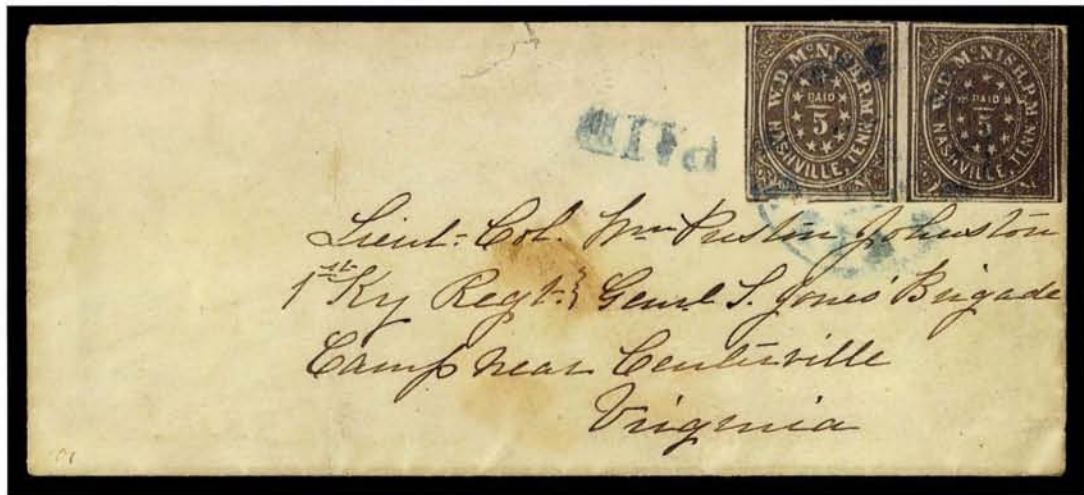 W.D. McNISH, P.M.
PAID
5
NASHVILLE, TENN.
W.D. McNISH, P.M.
PAID
5
NASHVILLE, TENN.
PAID
Lieut: Col. Wm Preston Johnston
1st Ky Regt: Genrl S. Jones' Brigade
Camp near Centerville
Virginia